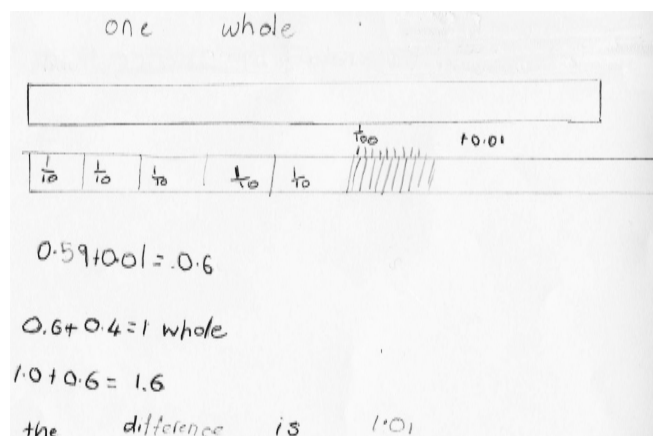 one whole
1/100 +0.01
1/10 1/10 1/10 1/10 1/10
0.59+0.01=0.6
0.6+0.4=1 whole
1.0+0.6= 1.6
the difference is 1.01